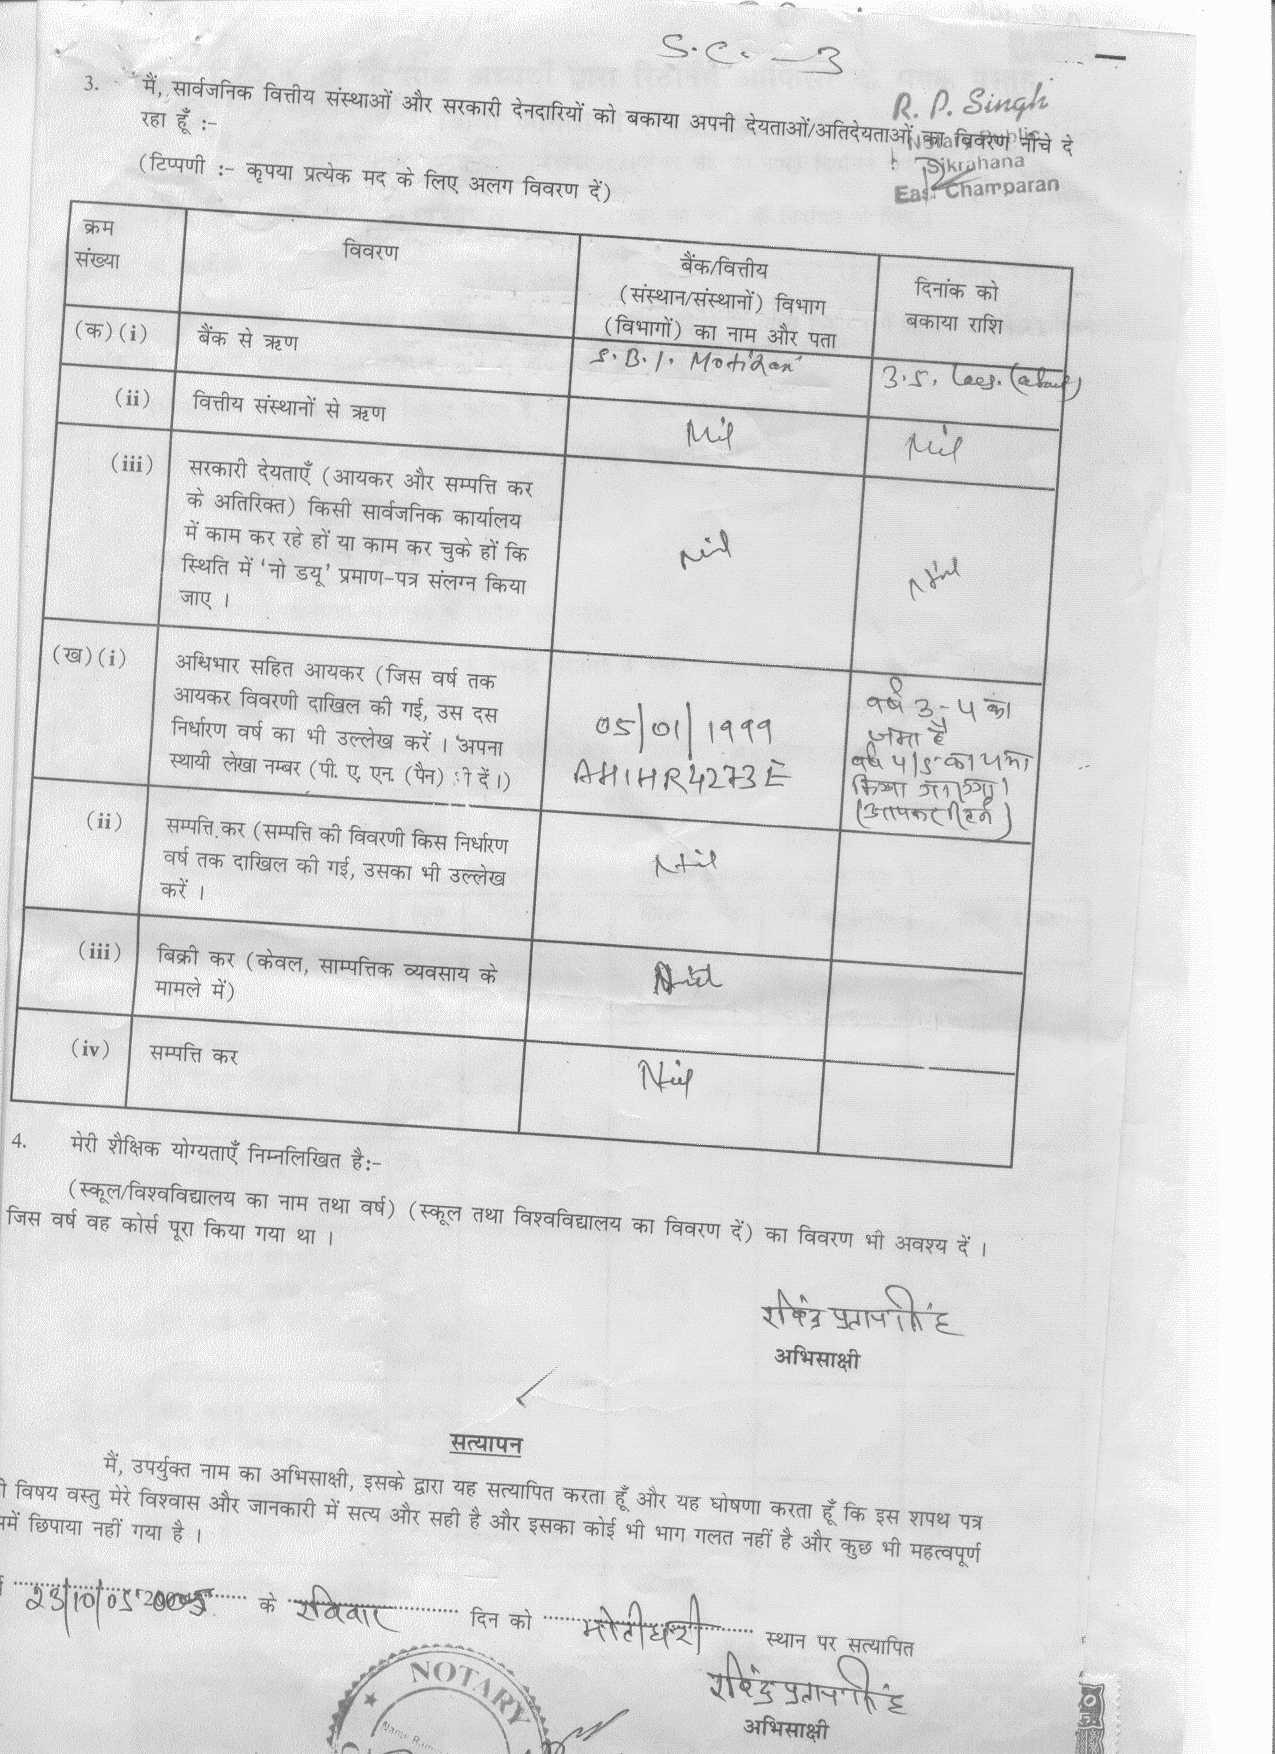 S.C. - 3
R. P. Singh
Notary Public
Sikrahana
East Champaran
3. मैं, सार्वजनिक वित्तीय संस्थाओं और सरकारी देनदारियों को बकाया अपनी देयताओं/अतिदेयताओं का विवरण नीचे दे
रहा हूँ :-
(टिप्पणी :- कृपया प्रत्येक मद के लिए अलग विवरण दें)
क्रम
संख्या
विवरण
बैंक/वित्तीय
(संस्थान/संस्थानों) विभाग
(विभागों) का नाम और पता
दिनांक को
बकाया राशि
(क)(i) बैंक से ऋण S.B.I. 3.5. (about)
(ii) वित्तीय संस्थानों से ऋण Nil Nil
(iii) सरकारी देयताएँ (आयकर और सम्पत्ति कर
के अतिरिक्त) किसी सार्वजनिक कार्यालय
में काम कर रहे हों या काम कर चुके हों कि
स्थिति में 'नो डयू' प्रमाण-पत्र संलग्न किया
जाए ।
Nil Nil
(ख)(i) अधिभार सहित आयकर (जिस वर्ष तक
आयकर विवरणी दाखिल की गई, उस दस
निर्धारण वर्ष का भी उल्लेख करें । अपना
स्थायी लेखा नम्बर (पी. ए. एन. (पैन) दें।)
05/01/1999
वर्ष 3-4 का
जमा है
वर्ष 4/5 का
(ii) सम्पत्ति कर (सम्पत्ति की विवरणी किस निर्धारण
वर्ष तक दाखिल की गई, उसका भी उल्लेख
करें ।
Nil
(iii) बिक्री कर (केवल, साम्पत्तिक व्यवसाय के
मामले में)
Nil
(iv) सम्पत्ति कर Nil
4. मेरी शैक्षिक योग्यताएँ निम्नलिखित है:-
(स्कूल/विश्वविद्यालय का नाम तथा वर्ष) (स्कूल तथा विश्वविद्यालय का विवरण दें) का विवरण भी अवश्य दें ।
जिस वर्ष वह कोर्स पूरा किया गया था ।
रविंद्र प्रताप सिंह
अभिसाक्षी
सत्यापन
मैं, उपर्युक्त नाम का अभिसाक्षी, इसके द्वारा यह सत्यापित करता हूँ और यह घोषणा करता हूँ कि इस शपथ पत्र
विषय वस्तु मेरे विश्वास और जानकारी में सत्य और सही है और इसका कोई भी भाग गलत नहीं है और कुछ भी महत्वपूर्ण
छिपाया नहीं गया है ।
23/10/05 2005 के रविवार दिन को मोतीहारी स्थान पर सत्यापित
रविंद्र प्रताप सिंह
अभिसाक्षी
NOTARY